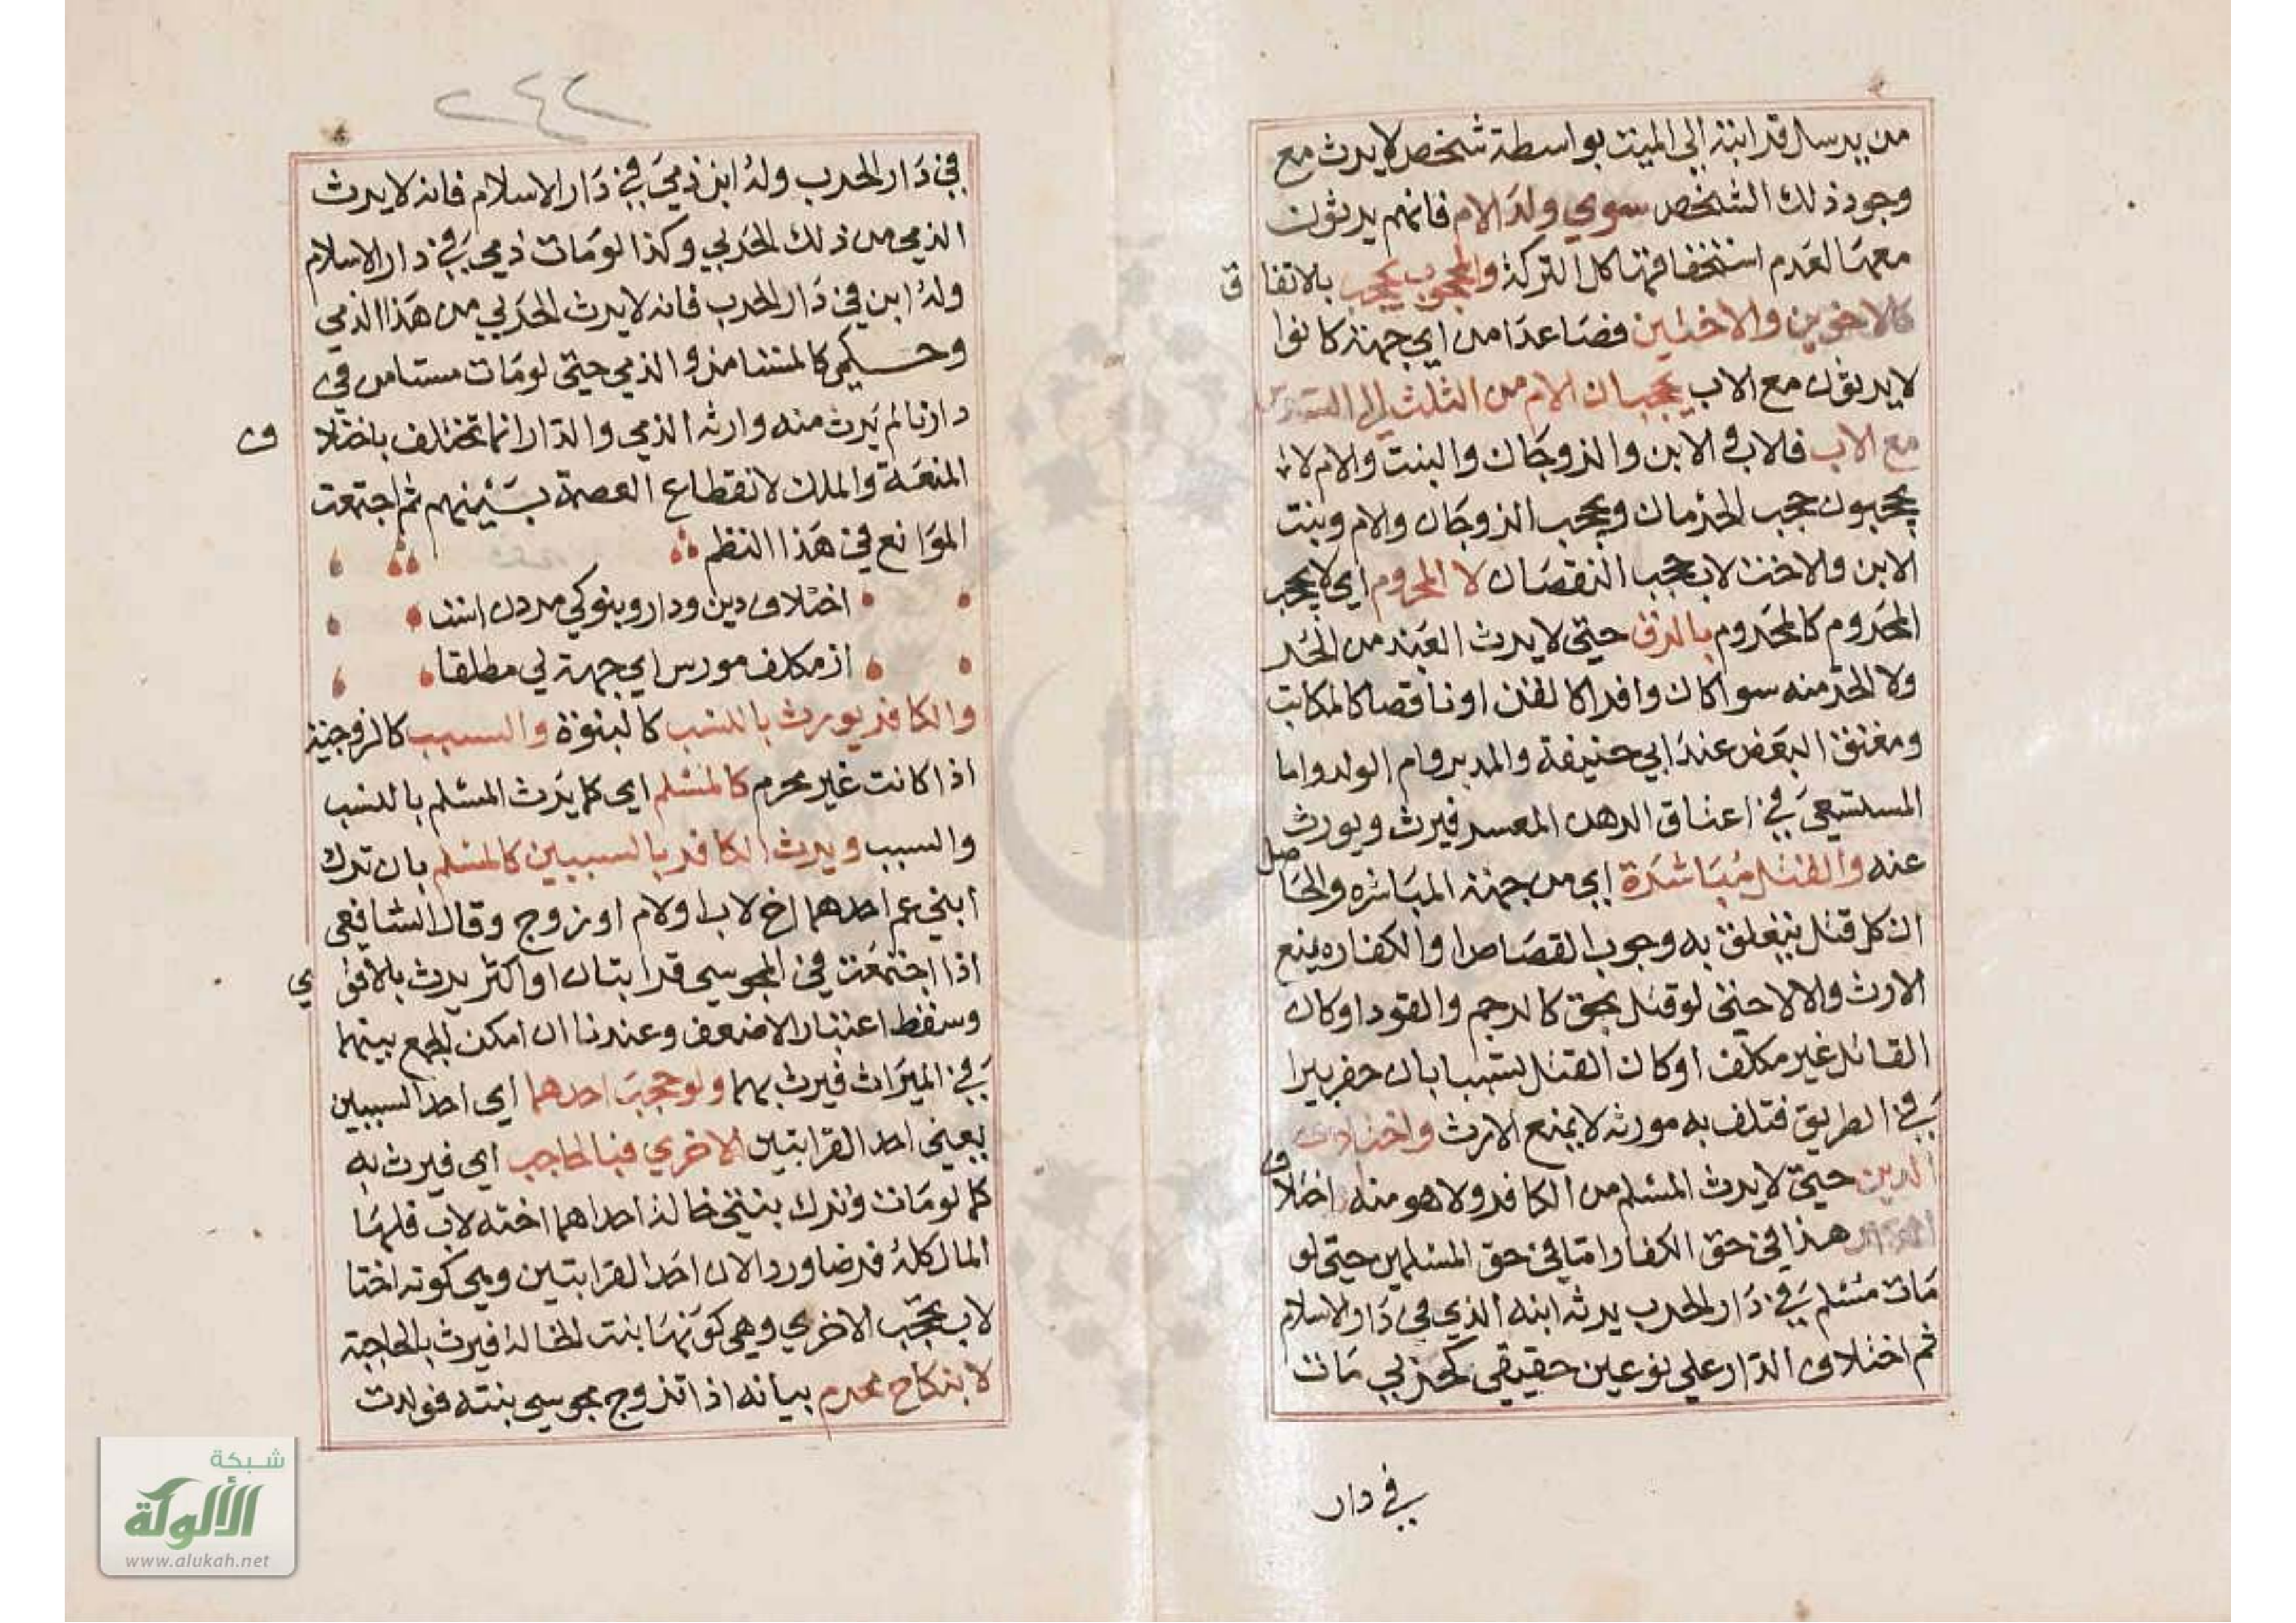 من يدسال قرابته الى الميت بواسطة شخص لا يرث مع
وجود ذلك الشخص سوي ولد الام فانهم يرثون
معها لعدم استحقاقها كل التركة والمحجوب يحجب بالاتفاق
كالاخوين والاختين فصاعدا من اي جهة كانوا
لا يرثون مع الاب يحجبان الام من الثلث الى السدس
مع الاب فالاب و الابن والزوجان والبنت والام لا
يحجبون حجب الحرمان ويحجب الزوجان والام وبنت
الابن والاخت لاب حجب النقصان لا المحروم اي لا يحجب
المحروم كالمحروم بالرق حتى لا يرث العبد من الحر
ولا الحر منه سوا كان وافرا كالقن او ناقصا كالمكاتب
ومعتق البعض عند ابي حنيفة والمدبر وام الولد واما
المستسعى في اعتاق الرهن المعسر فيرث ويورث
عنه والقتل مباشرة اي من جهة المباشره والحاصل
ان كل قتل يتعلق به وجوب القصاص او الكفاره يمنع
الارث والا لا حتى لو قتل بحق كالرجم والقود او كان
القاتل غير مكلف او كان القتل بسبب بان حفر بيرا
في الطريق فتلف به مورثه لا يمنع الارث واختلاف
الدين حتى لا يرث المسلم من الكافر ولا هو منه اختلاف
الدار هذا في حق الكفار واما في حق المسلمين حتى لو
مات مسلم في دار الحرب يرثه ابنه الذي في دار الاسلام
ثم اختلاف الدار على نوعين حقيقي كحربي مات
في دار
٢٤٢
في دار الحرب وله ابن ذمي في دار الاسلام فانه لا يرث
الذمي من ذلك الحربي وكذا لو مات ذمي في دار الاسلام
وله ابن في دار الحرب فانه لا يرث الحربي من هذا الذمي
وحكمي كالمستامن والذمي حتى لو مات مستامن في
دارنا لم يرث منه وارثه الذمي والدار انما تختلف باختلاف
المنعة والملك لانقطاع العصمة بينهم ثم اجتمعت
الموانع في هذا النظم
اختلاف دين ودار وبنوكي مردن است
از مكلف مورس اي جهة لي مطلقا
والكافر يورث بالنسب كالبنوة والسبب كالزوجية
اذا كانت غير محرم كالمسلم اي كما يرث المسلم بالنسب
والسبب ويرث الكافر بالسببين كالمسلم بان ترك
ابني عم احدهما اخ لاب او لام او زوج وقال الشافعي
اذا اجتمعت في المجوسي قرابتان او اكثر يرث بالاقوي
وسقط اعتبار الاضعف وعندنا ان امكن الجمع بينهما
في الميراث فيرث بهما ولو حجب احدهما اي احد السببين
يعني احد القرابتين الاخري فبالحاجب اي فيرث به
كما لو ماتت وترك بنتي خالة احداهما اخته لاب فلها
المال كله فرضا وردا لان احد القرابتين وهي كونه اختا
لاب تحجب الاخري وهي كونها بنت الخالة فيرث بالحاجبة
لا بنكاح محرم بيانه اذا تزوج مجوسي بنته فولدت
شبكة
الألوكة
www.alukah.net